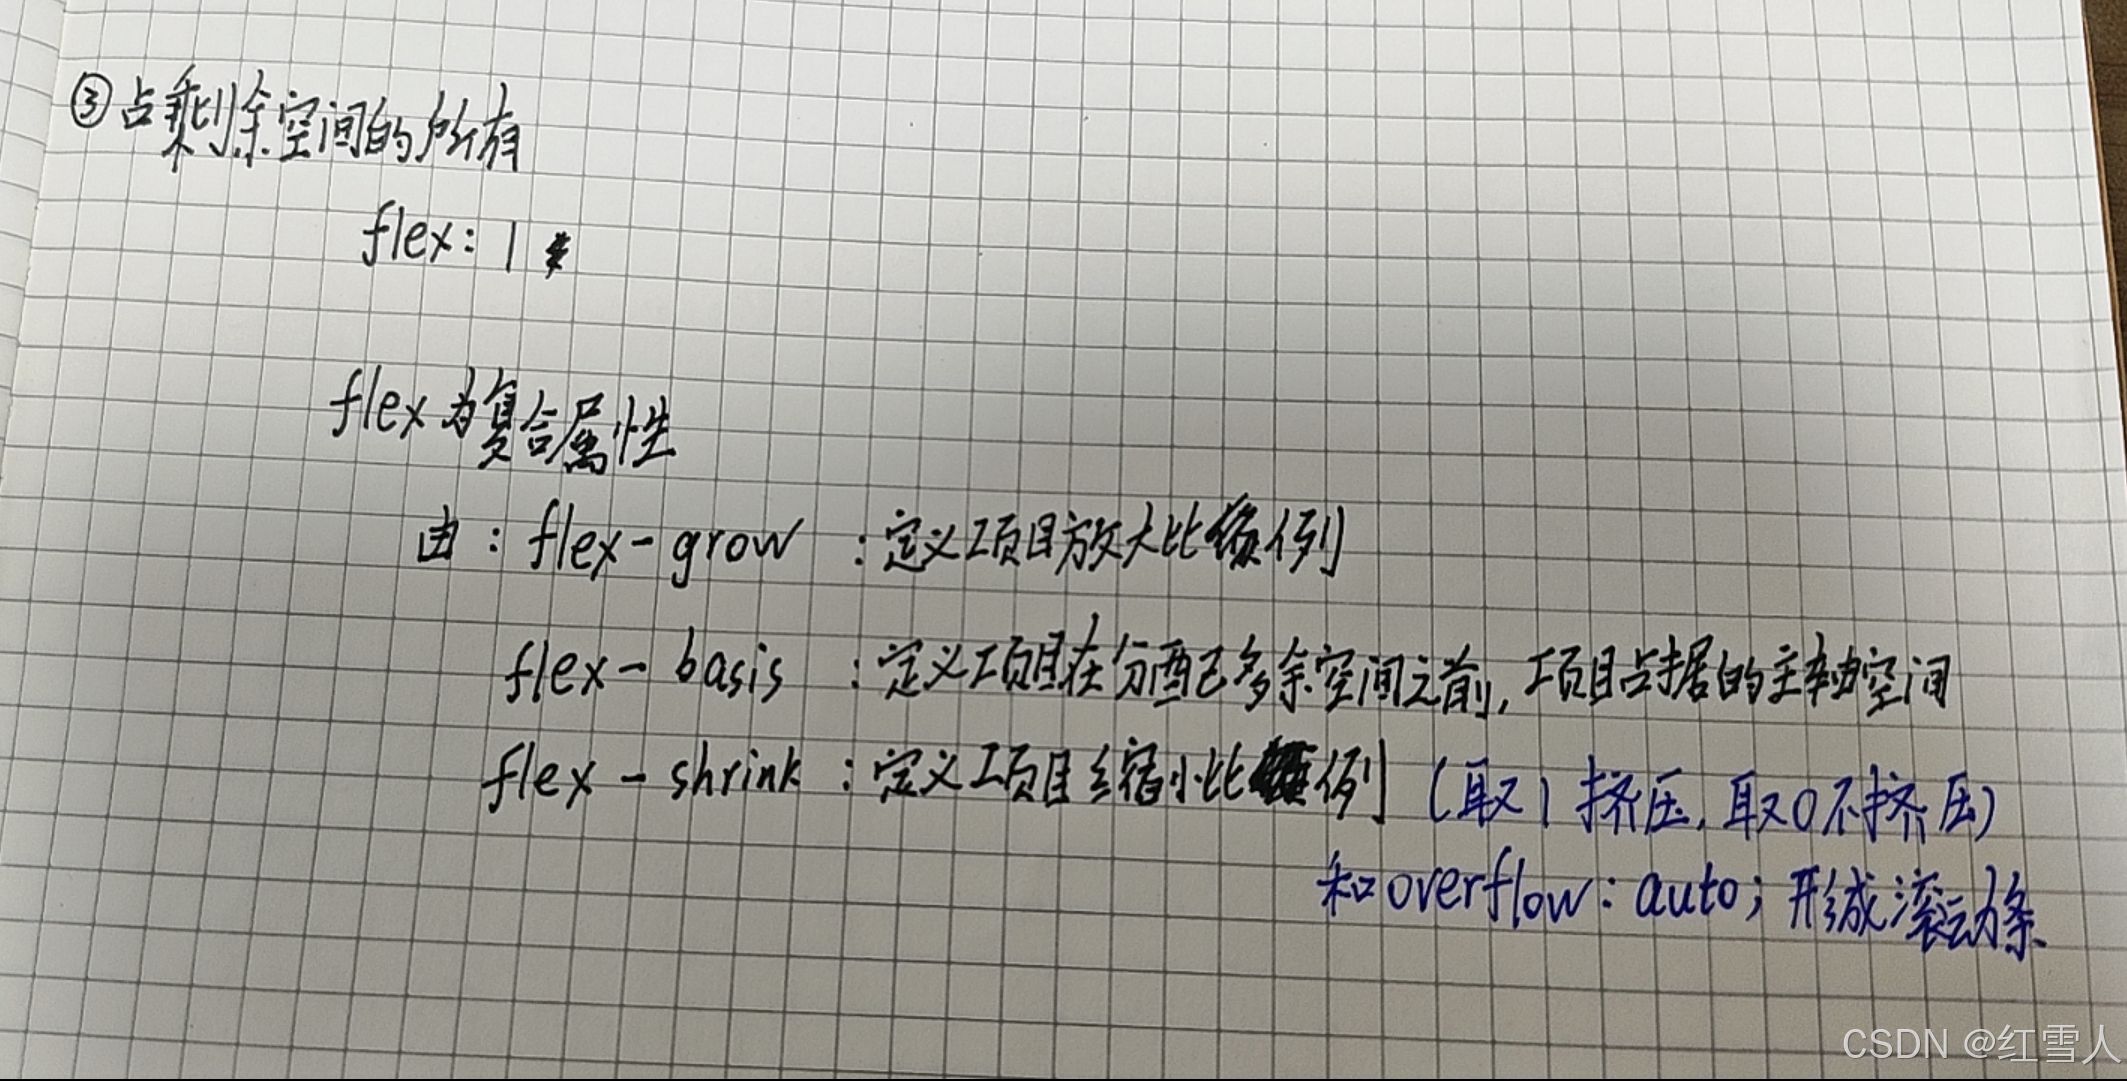 ③占剩余空间的所有
flex: 1
flex为复合属性
由: flex-grow :定义项目放大比例
flex-basis :定义项目在分配已多余空间之前,项目占据的主轴空间
flex-shrink :定义项目缩小比例 (取1挤压,取0不挤压)
和overflow: auto; 形成滚动条
CSDN @红雪人